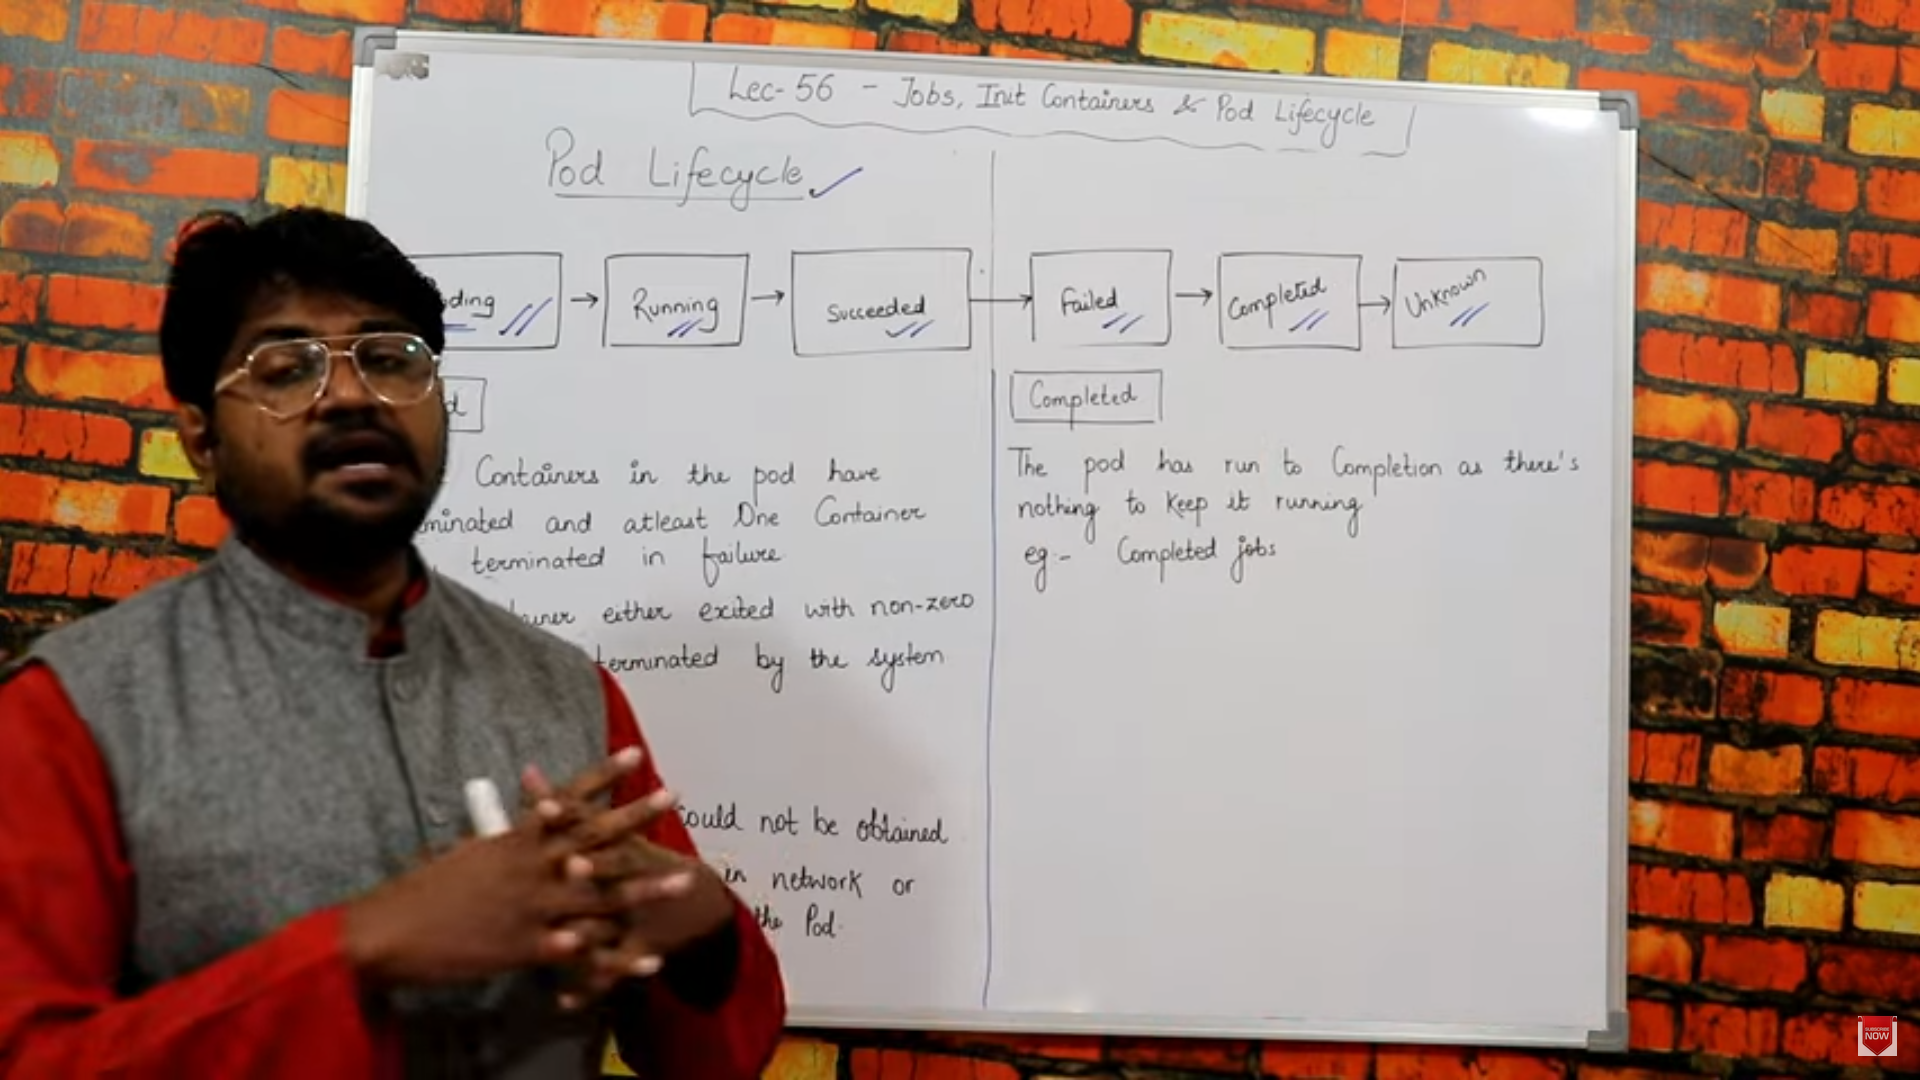 Lec-56 - Jobs, Init Containers & Pod Lifecycle
Pod Lifecycle
ding
Running
Succeeded
Failed
Completed
Unknown
d
Containers in the pod have
minated and atleast One Container
terminated in failure
ainer either exited with non-zero
terminated by the system
could not be obtained
in network or
the Pod.
Completed
The pod has run to Completion as there's
nothing to keep it running
eg:- Completed jobs
SUBSCRIBE
NOW